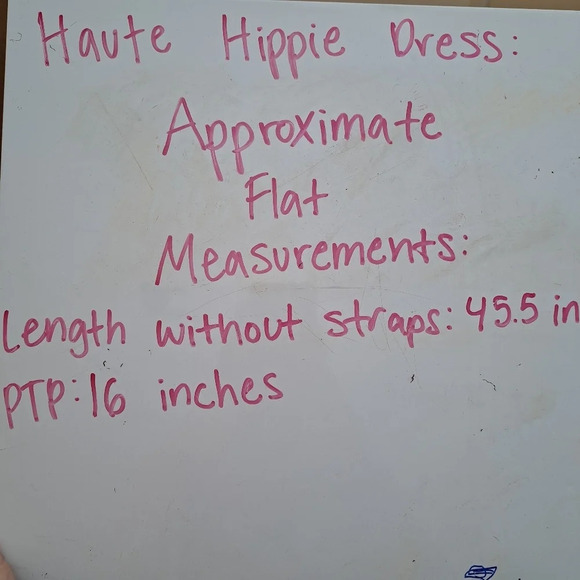 Haute Hippie Dress:
Approximate
Flat
Measurements:
Length without straps: 45.5 in
PTP: 16 inches